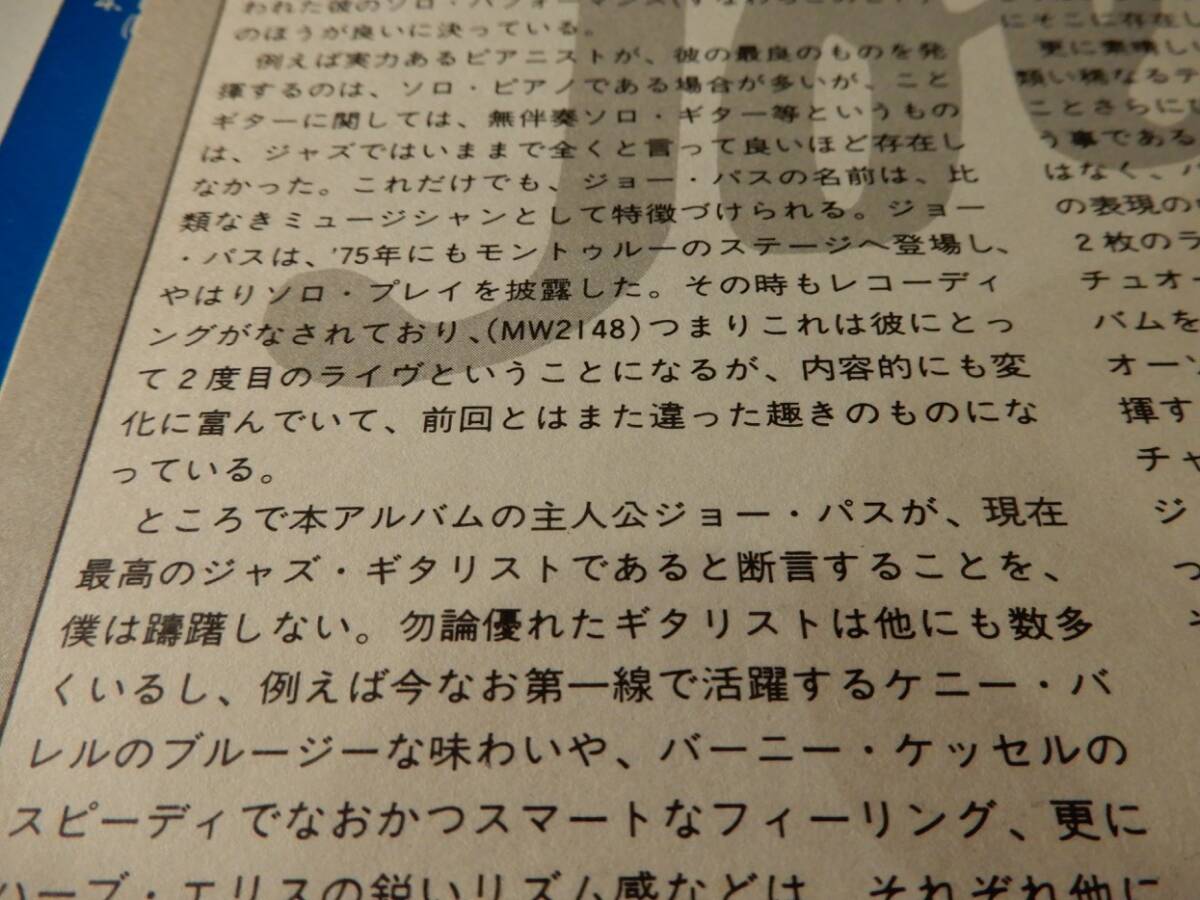 のほうが良いに決っている。
例えば実力あるピアニストが、彼の最良のものを発
揮するのは、ソロ・ピアノである場合が多いが、こと
ギターに関しては、無伴奏ソロ・ギター等というもの
は、ジャズではいままで全くと言って良いほど存在し
なかった。これだけでも、ジョー・パスの名前は、比
類なきミュージシャンとして特徴づけられる。ジョー
・パスは、'75年にもモントゥルーのステージへ登場し、
やはりソロ・プレイを披露した。その時もレコーディ
ングがなされており、(MW2148)つまりこれは彼にとっ
て2度目のライヴということになるが、内容的にも変
化に富んでいて、前回とはまた違った趣きのものにな
っている。
ところで本アルバムの主人公ジョー・パスが、現在
最高のジャズ・ギタリストであると断言することを、
僕は躊躇しない。勿論優れたギタリストは他にも数多
くいるし、例えば今なお第一線で活躍するケニー・バ
レルのブルージーな味わいや、バーニー・ケッセルの
スピーディでなおかつスマートなフィーリング、更に
ハーブ・エリスの鋭いリズム感などは、それぞれ他に
にそこに存在し
更に素晴しい
類い稀なるテ
ことさらに
う事である
はなく、
の表現の
2枚のラ
チュオ
バムを
オーソ
揮す
チャ
ジ
つ